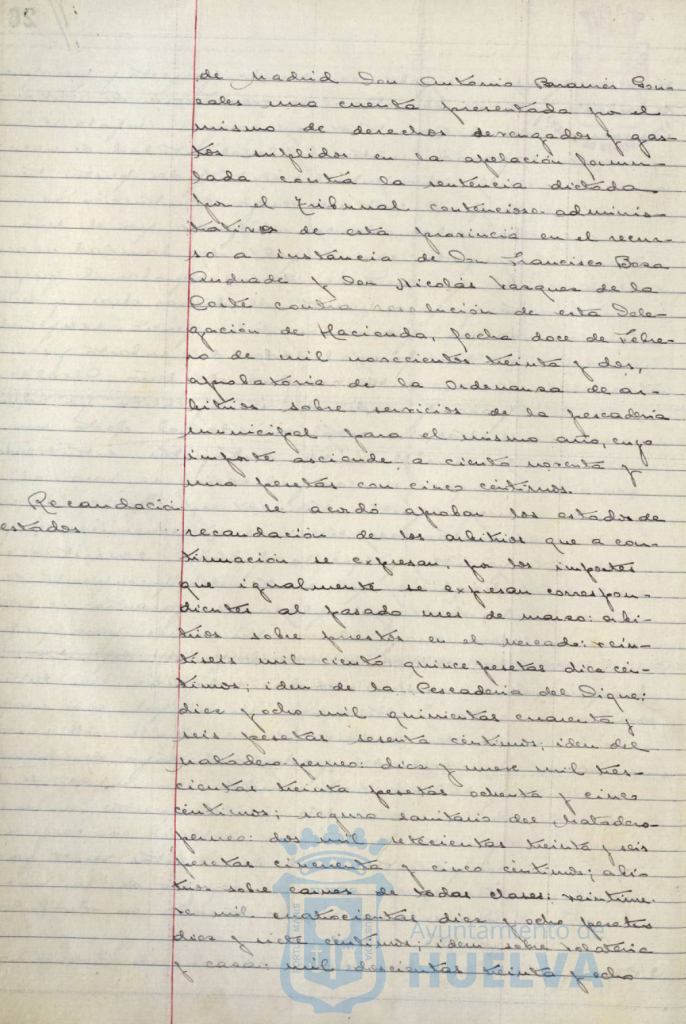 de Madrid Don Antonio Bonamés Gon-
zales una cuenta presentada por el
mismo de derechos devengados y gas-
tos suplidos en la apelación formu-
lada contra la sentencia dictada
por el Tribunal contencioso-adminis-
trativo de esta provincia en el recur-
so a instancia de Don Francisco Boza
Andrade y Don Nicolás Vazquez de la
Corte contra resolución de esta Dele-
gación de Hacienda, fecha doce de Febre-
ro de mil novecientos treinta y dos,
aprobatoria de la Ordenanza de ar-
bitrios sobre servicios de la pescaderia
municipal para el mismo año, cuyo
importe asciende a ciento noventa y
una pesetas con cinco centimos.
Recaudación
estados
Se acordó aprobar los estados de
recaudación de los arbitrios que a con-
tinuación se expresan, por los importes
que igualmente se expresan correspon-
dientes al pasado mes de marzo: arbi-
trios sobre puestos en el mercado: vein-
tiseis mil ciento quince pesetas diez cén-
timos; idem de la Pescaderia del Dique:
diez y ocho mil quinientas cuarenta y
seis pesetas sesenta céntimos; idem del
Matadero perneo: diez y nueve mil tres-
cientas treinta pesetas ochenta y cinco
céntimos; seguro sanitario del Matadero
perneo: dos mil setecientas treinta y seis
pesetas cincuenta y cinco centimos; arbi-
trios sobre carnes de todas clases: veintinue-
ve mil cuatrocientas diez y ocho pesetas
diez y siete centimos; idem sobre volateria
y caza: mil doscientas treinta y ocho
Ayuntamiento de
HUELVA